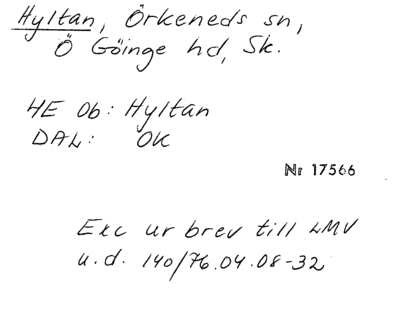 Hyltan, Örkeneds sn,
Ö Göinge hd, Sk.
HE Ob: Hyltan
DAL: OK
Nr 17566
Exc ur brev till LMV
u.d. 140/76.04.08-32